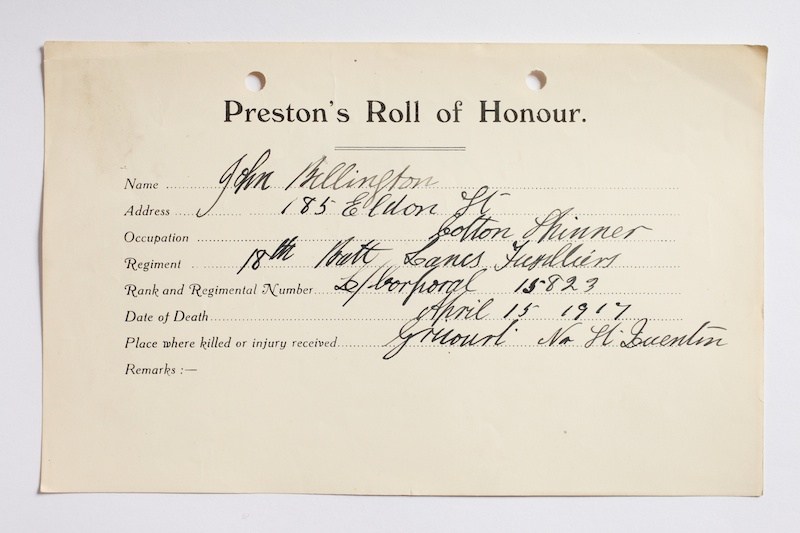 Preston's Roll of Honour.
Name John Billington
Address 185 Eldon St
Occupation Cotton Spinner
Regiment 18th Batt Lancs Fusilliers
Rank and Regimental Number L/Corporal 15823
Date of Death April 15 1917
Place where killed or injury received Nr St Quentin
Remarks :—